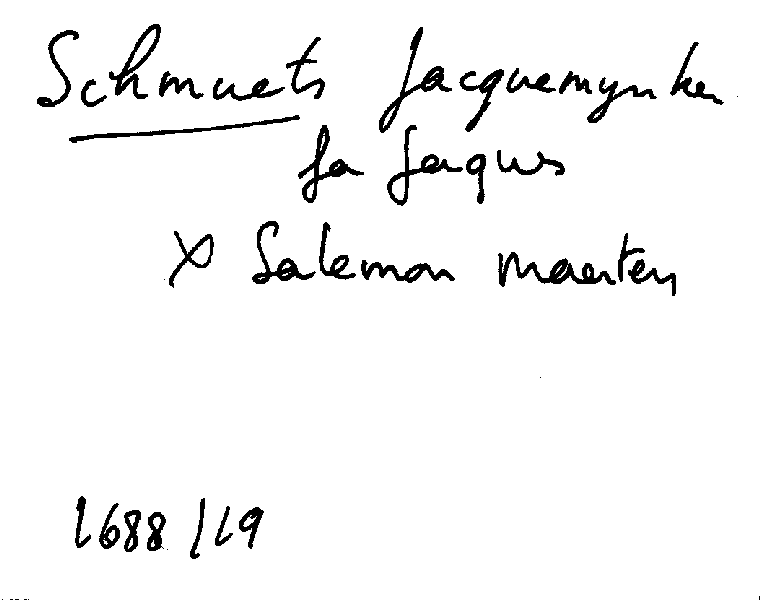 Schmuets Jacquemynken
fa Jaques
x Salemon Maerten
1688/19